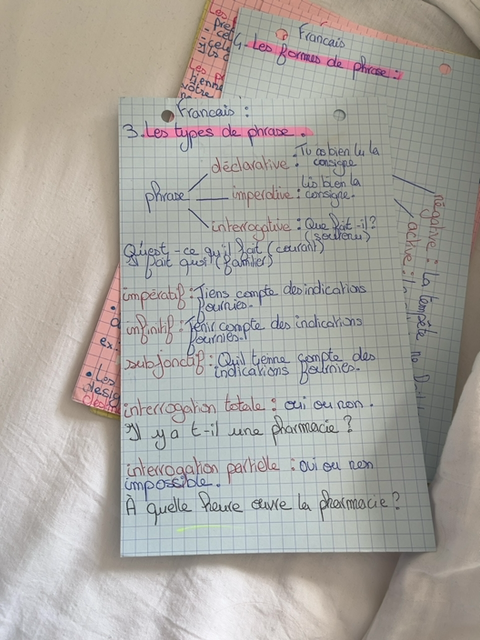 Francais
4. Les formes de phrase :
Francais :
3. Les types de phrase.
phrase
déclarative : Tu as bien lu la
consigne
imperative : Lis bien la
consigne.
interrogative : Que fait-il?
(soutenu)
Qu'est-ce qu'il fait (courant)
Il fait quoi (familier)
impératif : Tiens compte des indications
fournies.
infinitif : Tenir compte des indications
fournies.
subjonctif : Qu'il tienne compte des
indications fournies.
interrogation totale : oui ou non.
Il y a t-il une pharmacie ?
interrogation partielle : oui ou non
impossible.
À quelle heure ouvre la pharmacie ?
négative : La tempête ne
active :
Les
ex
Les